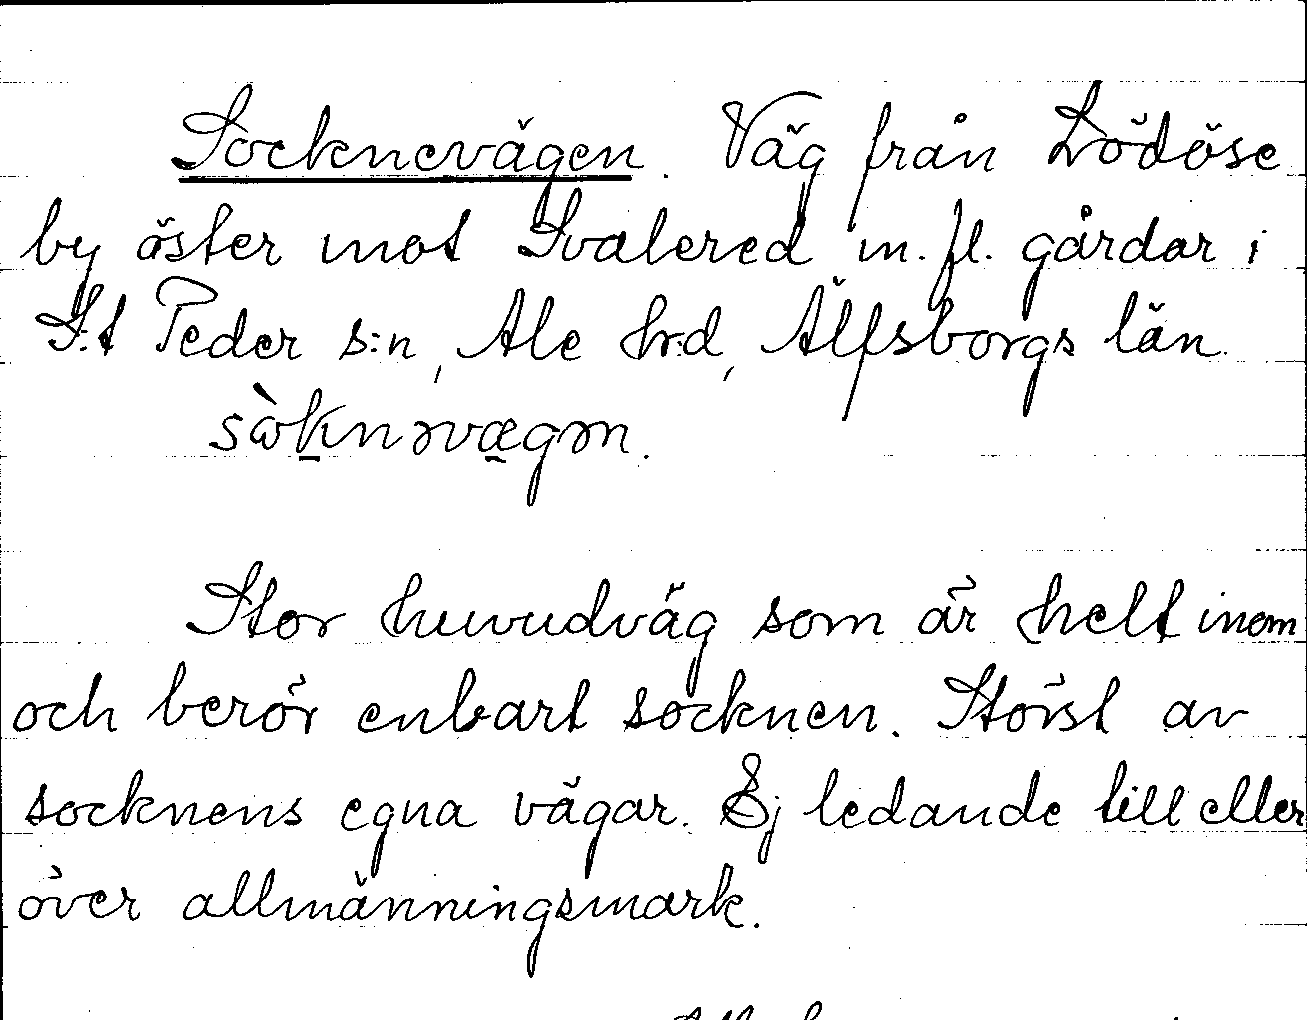 Socknevägen. Väg från Lödöse
by öster mot Svalered m. fl. gårdar i
S:t Peder s:n, Ale hrd, Älfsborgs län.
sὼk̲nəvæ̲gən.
Stor huvudväg som är helt inom
och berör enbart socknen. Störst av
socknens egna vägar. Ej ledande till eller
över allmänningsmark.